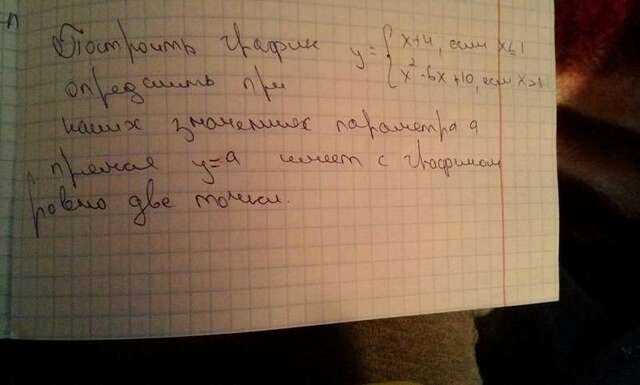 Построить график y = { x+4, если x≤1
x² - 6x + 10, если x>1
определить при
каких значениях параметра a
прямая y=a имеет с графиком
ровно две точки.